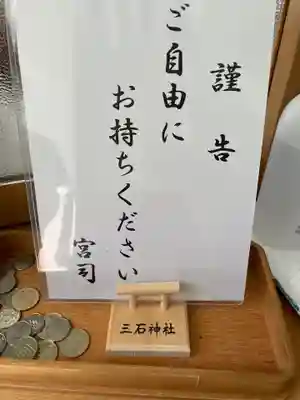 謹告
ご自由に
お持ちください
宮司
三石神社